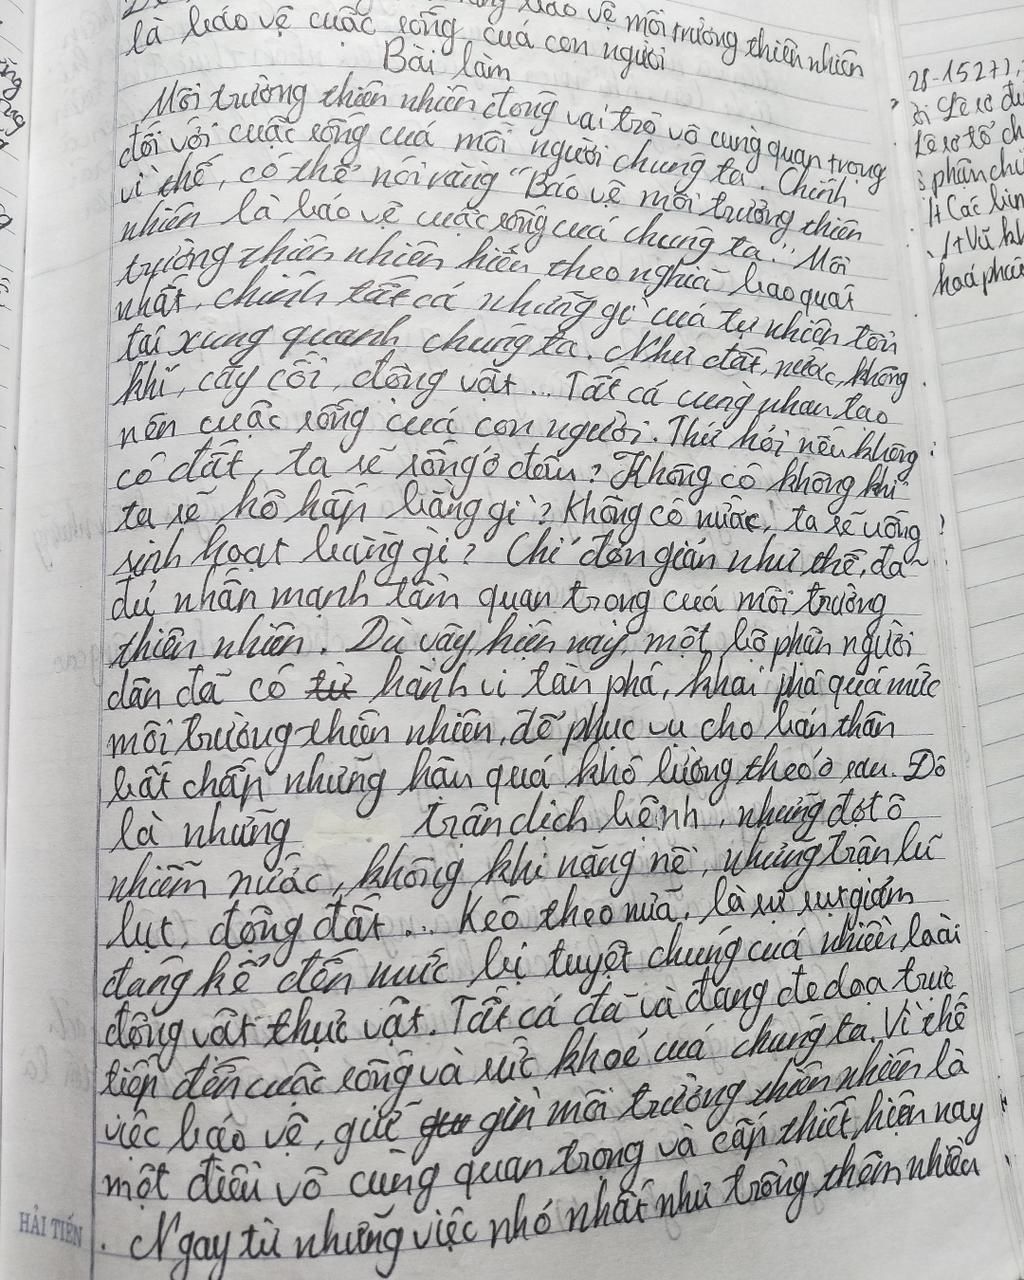 bảo vệ môi trường thiên nhiên
là bảo vệ cuộc sống của con người
Bài làm
Môi trường thiên nhiên đóng vai trò vô cùng quan trọng
đối với cuộc sống của mỗi người chúng ta. Chính
vì thế, có thể nói rằng "Bảo vệ môi trường thiên
nhiên là bảo vệ cuộc sống của chúng ta." Môi
trường thiên nhiên hiểu theo nghĩa bao quát
nhất, chính tất cả những gì của tự nhiên tồn
tại xung quanh chúng ta. Như đất, nước, không
khí, cây cối, động vật... Tất cả cùng nhau tạo
nên cuộc sống của con người. Thử hỏi nếu không
có đất, ta sẽ sống ở đâu? Không có không khí
ta sẽ hô hấp bằng gì? Không có nước, ta sẽ uống
sinh hoạt bằng gì? Chỉ đơn giản như thế, đã
đủ nhấn mạnh tầm quan trọng của môi trường
thiên nhiên. Dù vậy, hiện nay, một bộ phận người
dân đã có hành vi tàn phá, khai phá quá mức
môi trường thiên nhiên, để phục vụ cho bản thân
bất chấp những hậu quả khó lường theo ở sau. Đó
là những trận dịch bệnh, những đợt ô
nhiễm nước, không khí nặng nề, những trận lũ
lụt, động đất... Kéo theo nữa, là sự sụt giảm
đáng kể đến mức bị tuyệt chủng của nhiều loài
động vật thực vật. Tất cả đã và đang đe doạ trực
tiếp đến cuộc sống và sức khoẻ của chúng ta. Vì thế
việc bảo vệ, giữ gìn môi trường thiên nhiên là
một điều vô cùng quan trọng và cấp thiết hiện nay
. Ngay từ những việc nhỏ nhất như trồng thêm nhiều
HẢI TIẾN
28-1527),
Lê sơ
Lê sơ tổ
phận
1+ Các
1+ Vũ